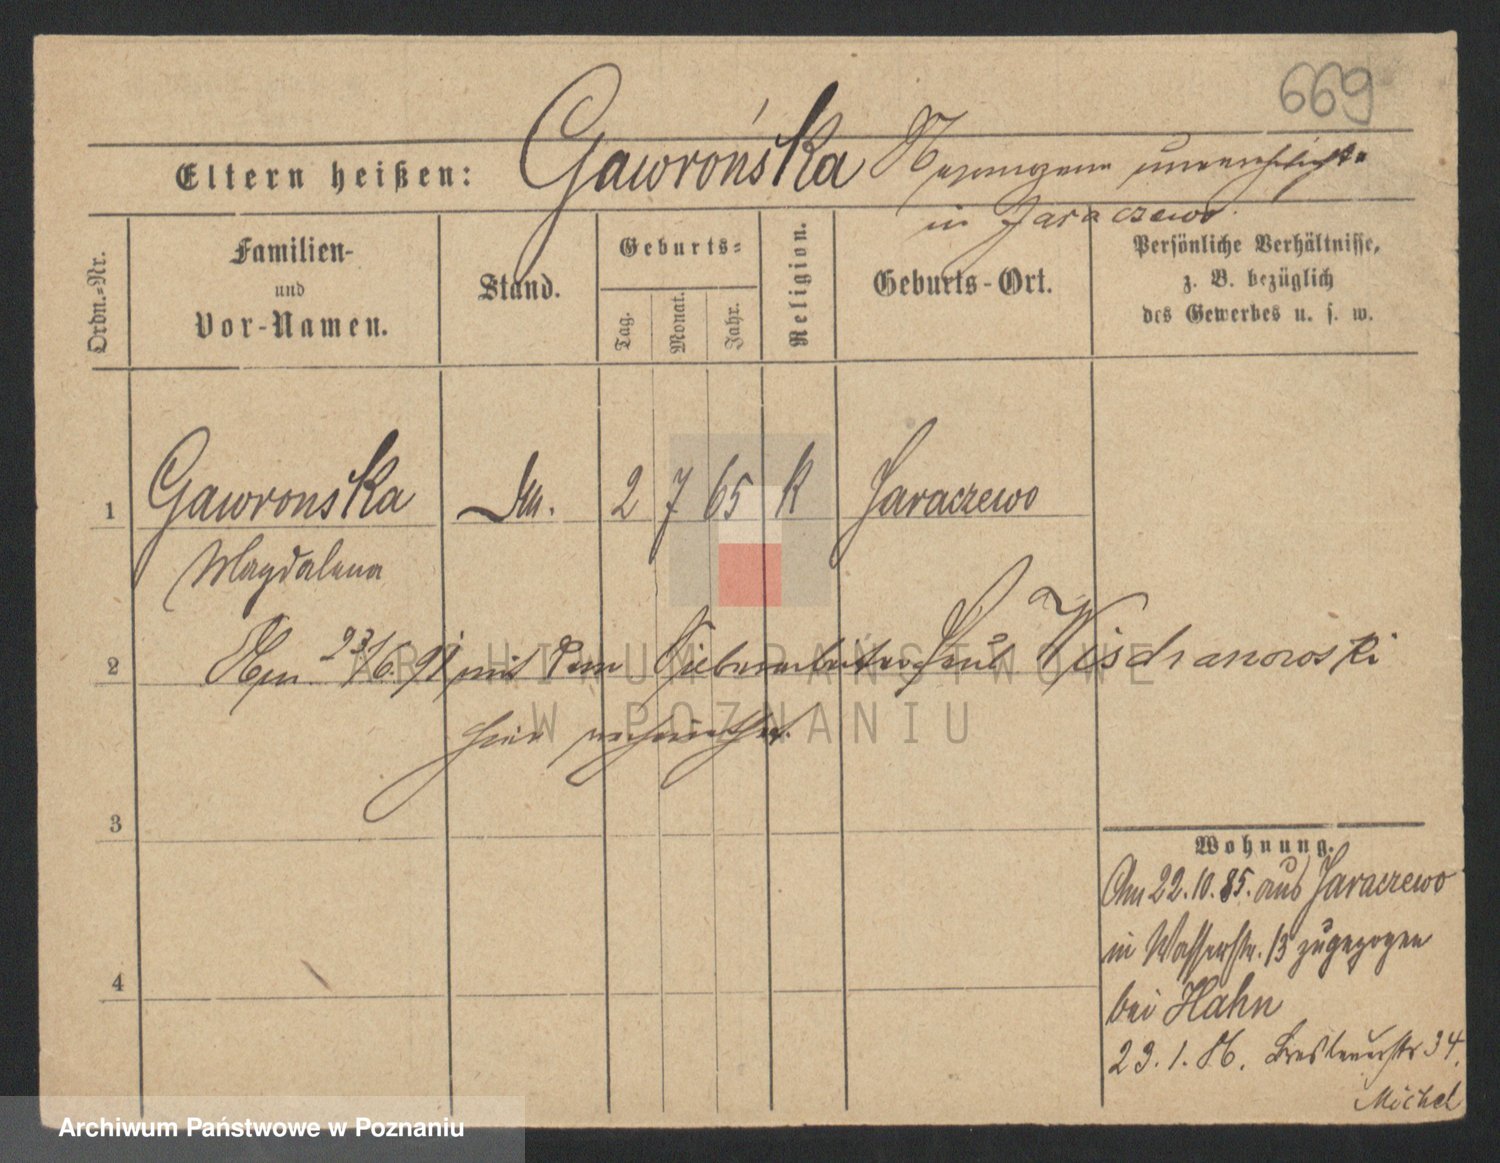 669
Eltern heißen: Gawrońska unverehelicht
in Jaraczewo.
Ordn.-Nr.
Familien-
und
Vor-Namen.
Stand.
Geburts-
Tag.
Monat.
Jahr.
Religion.
Geburts-Ort.
Persönliche Verhältnisse,
z. B. bezüglich
des Gewerbes u. s. w.
1 Gawronska 2 7 65 k Jaraczewo
Magdalena
2 23/6. 91 mit dem Paul
hier
3
4
Wohnung.
Am 22.10.85. aus Jaraczewo
in Wasserstr. 13 zugezogen
bei Hahn
23.1.86. Breslauerstr 34.
Michel
ARCHIWUM PAŃSTWOWE
W POZNANIU
Archiwum Państwowe w Poznaniu